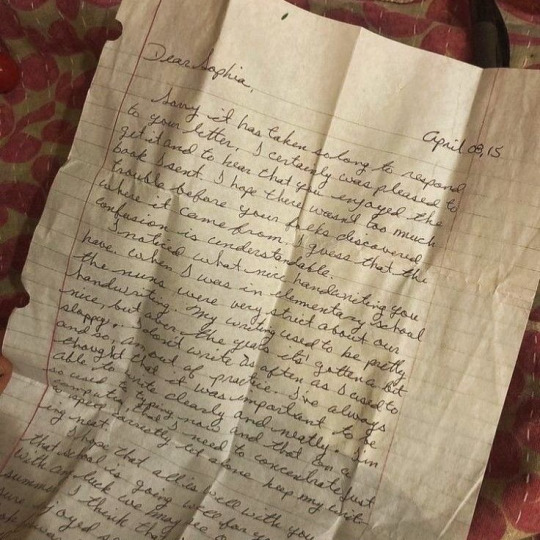 Dear Sophia,
April 08, 15
Sorry it has taken so long to respond
to your letter. I certainly was pleased to
get it and to hear that you enjoyed the
book I sent. I hope there wasn't too much
trouble before your folks discovered
where it came from. I guess that the
confusion is understandable.
I noticed what nice handwriting you
have. When I was in elementary school
the nuns were very strict about our
handwriting. My writing used to be pretty
nice, but over the years it's gotten a bit
sloppy. I don't write as often as I used to
and so, am out of practice. I've always
thought that it was important to be
able to write clearly and neatly. I'm
so used to typing now and that on a
computer, that I need to concentrate just
on let alone keep my writ-
ing neat.
I hope that all is well with you
that school is going well for you
With any luck we may
summer
I think the